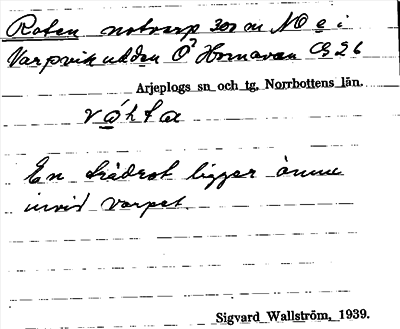 Roten notvarp 300 m NO e i
Varpvikudden Ö Hornavan G 26
Arjeplogs sn och tg, Norrbottens län.
råhta
En trädrot ligger ännu
invid varpet.
Sigvard Wallström, 1939.